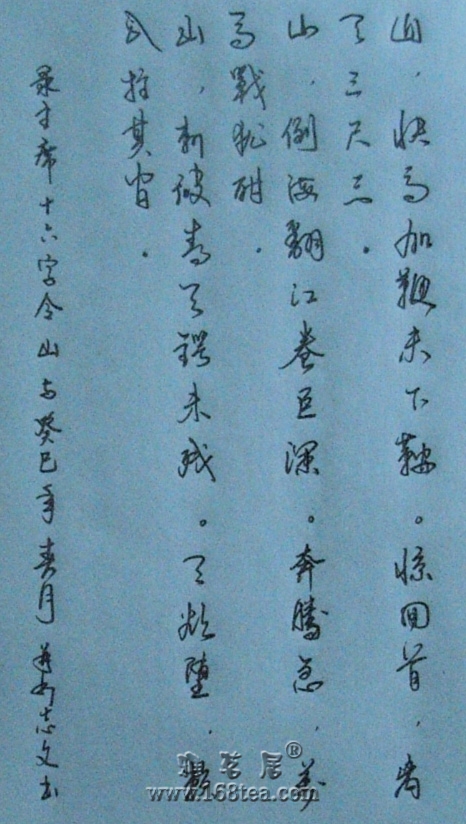 山，快马加鞭未下鞍。惊回首，离
天三尺三。
山，倒海翻江卷巨澜。奔腾急，万
马戰犹酣。
山，刺破青天锷未残。天欲堕，赖
以拄其间。
录主席十六字令山与癸巳年春月 并州志文书
茗居®
www.168tea.com